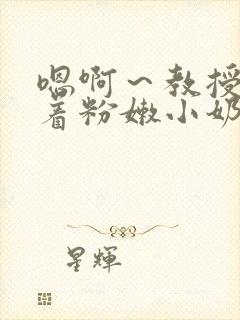 嗯啊～教授
着粉嫩小奶
星輝